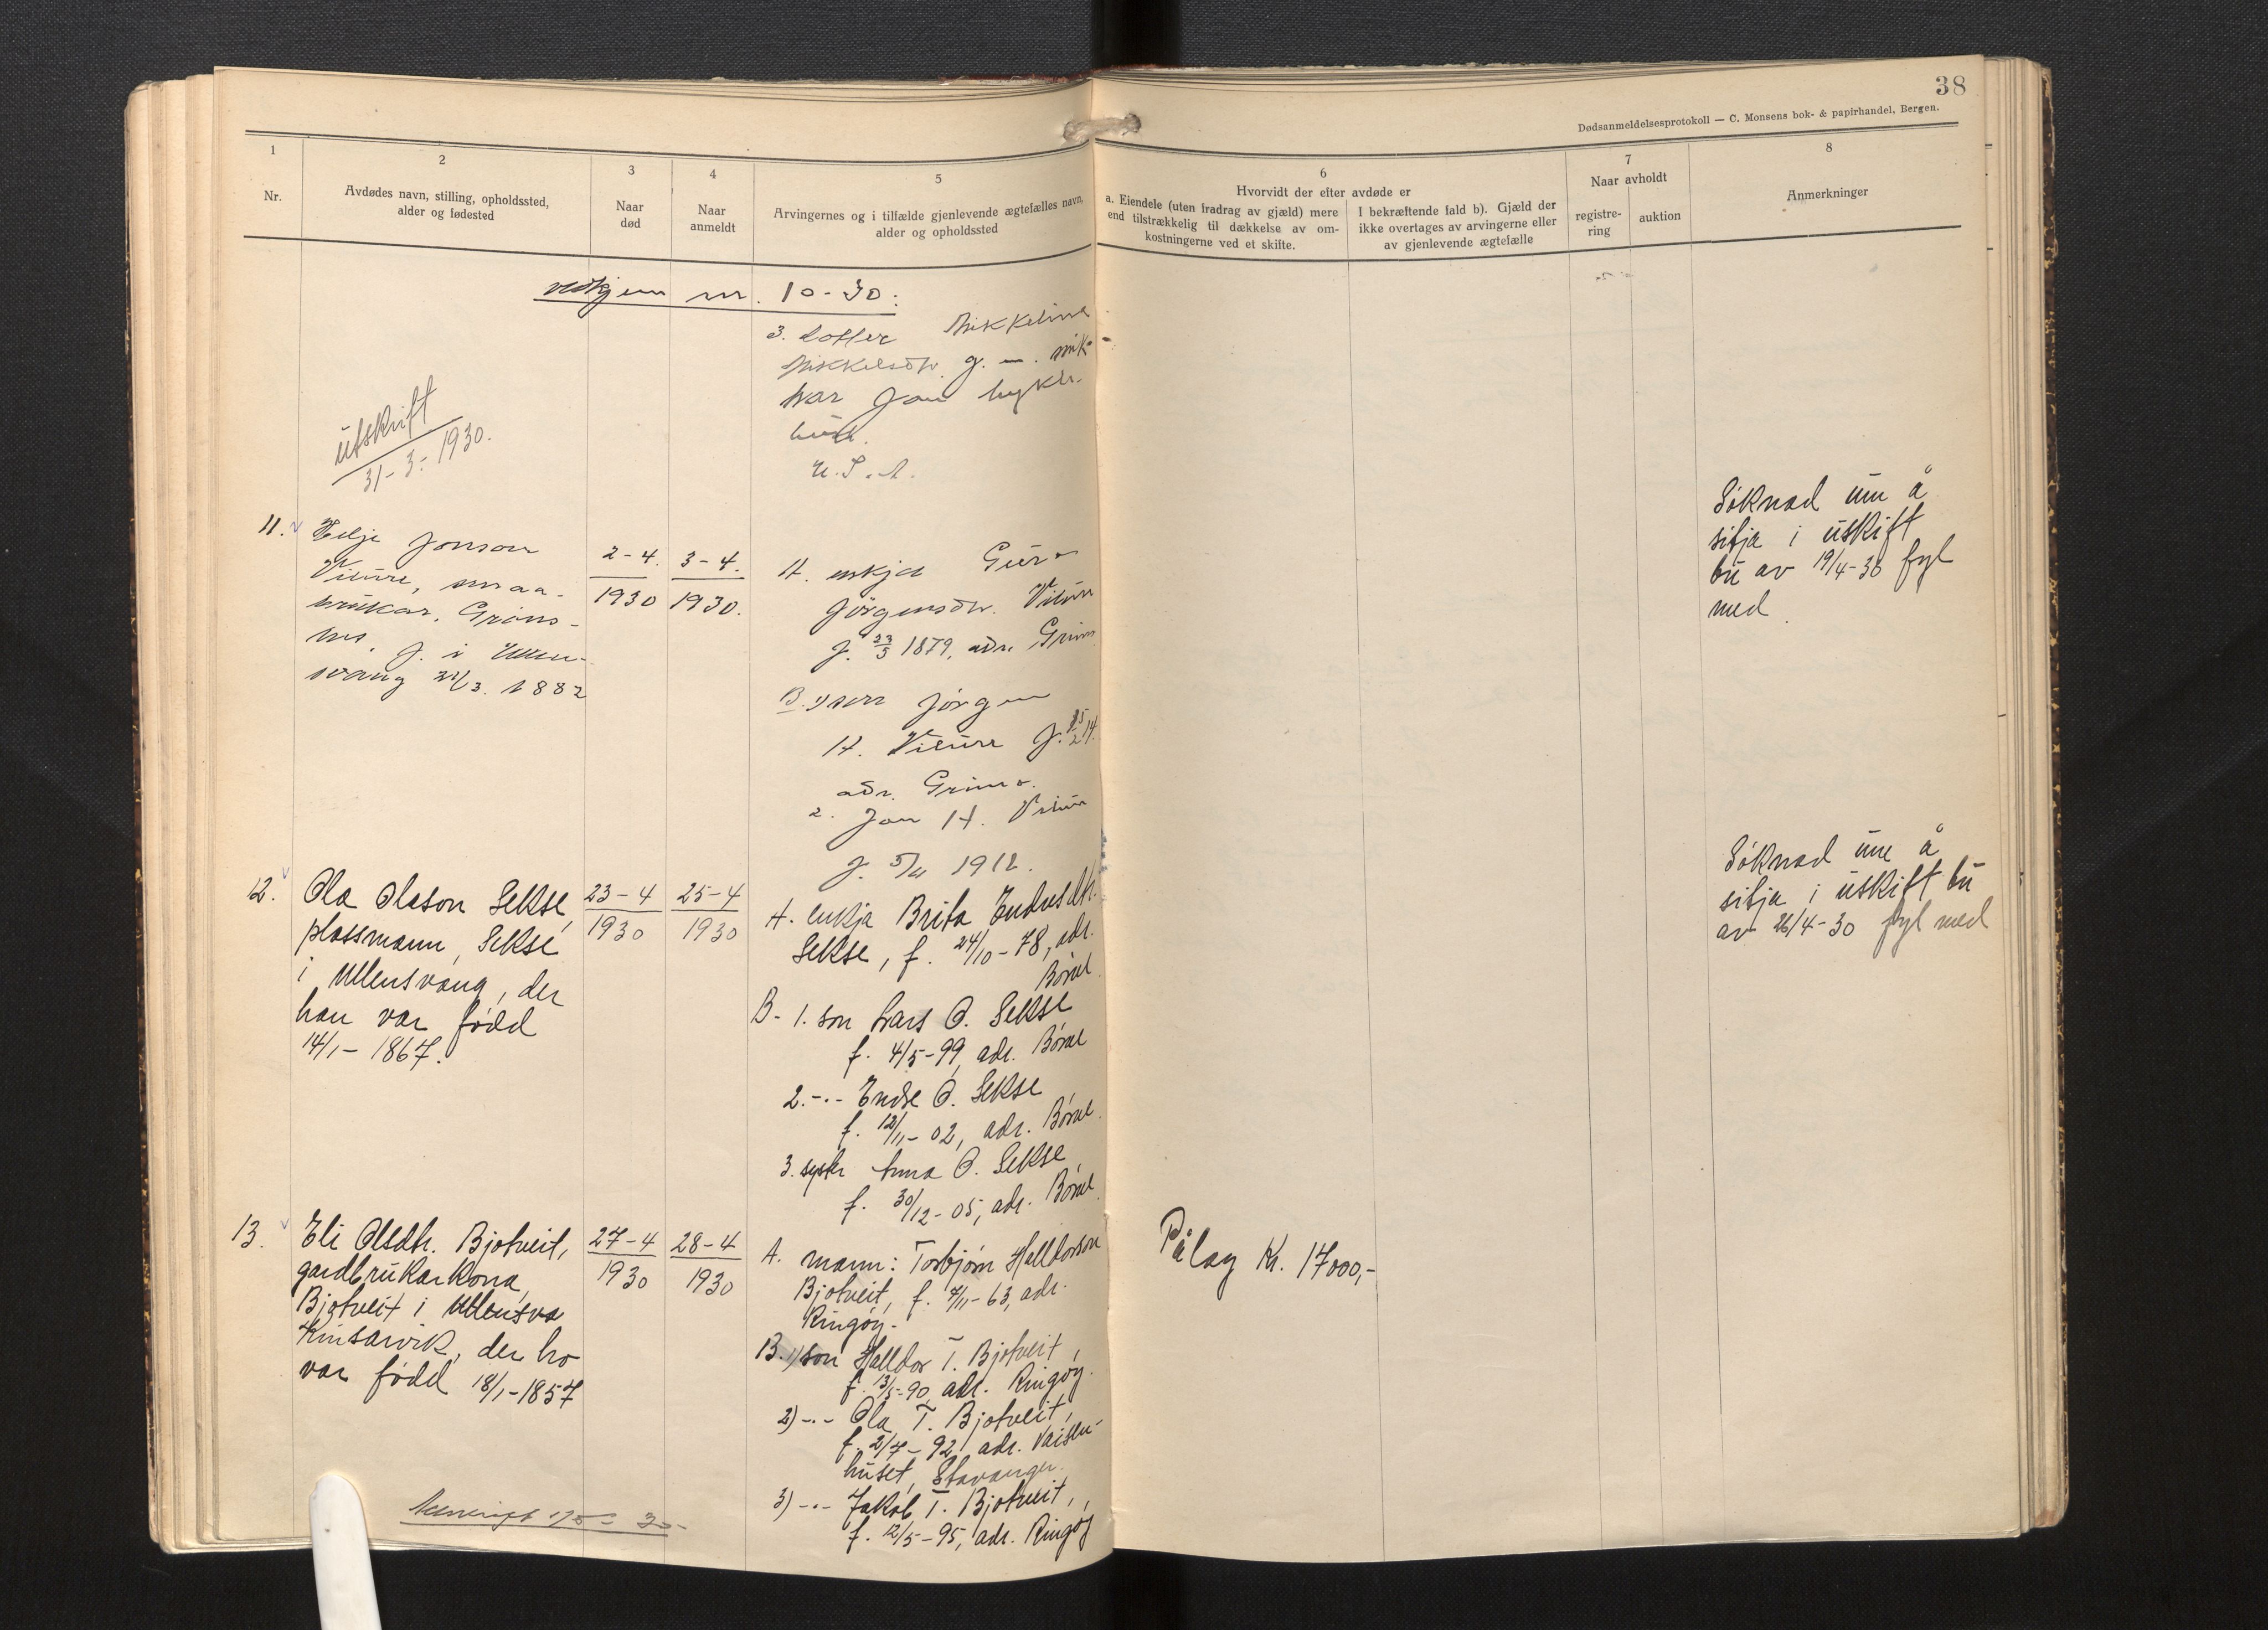 38
Dødsanmeldelsesprotokoll — C. Monsens bok- & papirhandel, Bergen.
1
Nr.
2
Avdødes navn, stilling, opholdssted,
alder og fødested
3
Naar
død
4
Naar
anmeldt
5
Arvingernes og i tilfælde gjenlevende ægtefælles navn,
alder og opholdssted
6
Hvorvidt der efter avdøde er
a. Eiendele (uten fradrag av gjæld) mere
end tilstrækkelig til dækkelse av om-
kostningerne ved et skifte.
I bekræftende fald b). Gjæld der
ikke overtages av arvingerne eller
av gjenlevende ægtefælle
7
Naar avholdt
registre-
ring
auktion
8
Anmerkninger
vedkjem nr. 10-30:
3. dotter Mikkelina
Mikkelsdtr. g. m.
Jon
U.S.A.
utskrift
31-3-1930.
11.
Helje Jonson
Vikure, smaa-
brukar, Grimo-
f. i Ullen-
svang 1882
2-4.
1930
3-4.
1930.
A. enkja Guro
Jörgensdtr. Vikure
f. 23/5 1879, adr. Grimo
B. 1) son Jörgen
H. Vikure f. 14.
adr. Grimo.
2. Jon H. Vikure
f. 1912.
Söknad um å
sitja i uskift
bu av 19/4-30 fyl
med.
12.
Ola Olason Sekse,
plassmann, Sekse
i Ullensvang, der
han var fødd
14/1-1867.
23-4
1930
25-4
1930
A. enkja Brita Endresdtr.
Sekse, f. 24/10-78, adr.
Börve.
B- 1. son Lars O. Sekse
f. 4/5-99, adr. Börve
2.-.- Endre O. Sekse
f. 12/11-02, adr. Börve.
3. syster Anna O. Sekse,
f. 30/12-05, adr. Börve.
Söknad um å
sitja i uskift bu
av 26/4-30 fyl med
13.
Eli Olsdtr. Bjotveit,
gardbrukarkona,
Bjotveit i Ullensva
Kinsarvik, der ho
var fødd 18/1-1857
27-4
1930
28-4
1930
A. mann: Torbjörn Halldorson
Bjotveit, f. 4/11-63, adr.
Ringøy.
B. 1) son Halldor T. Bjotveit,
f. 13/5-90, adr. Ringøy.
2) -.- Ola T. Bjotveit,
f. 2/7-92, adr. Vaisen-
huset, Stavanger.
3) -.- Jakob T. Bjotveit,
f. 12/5-95, adr. Ringøy
Pålag Kr. 17000,-
30-